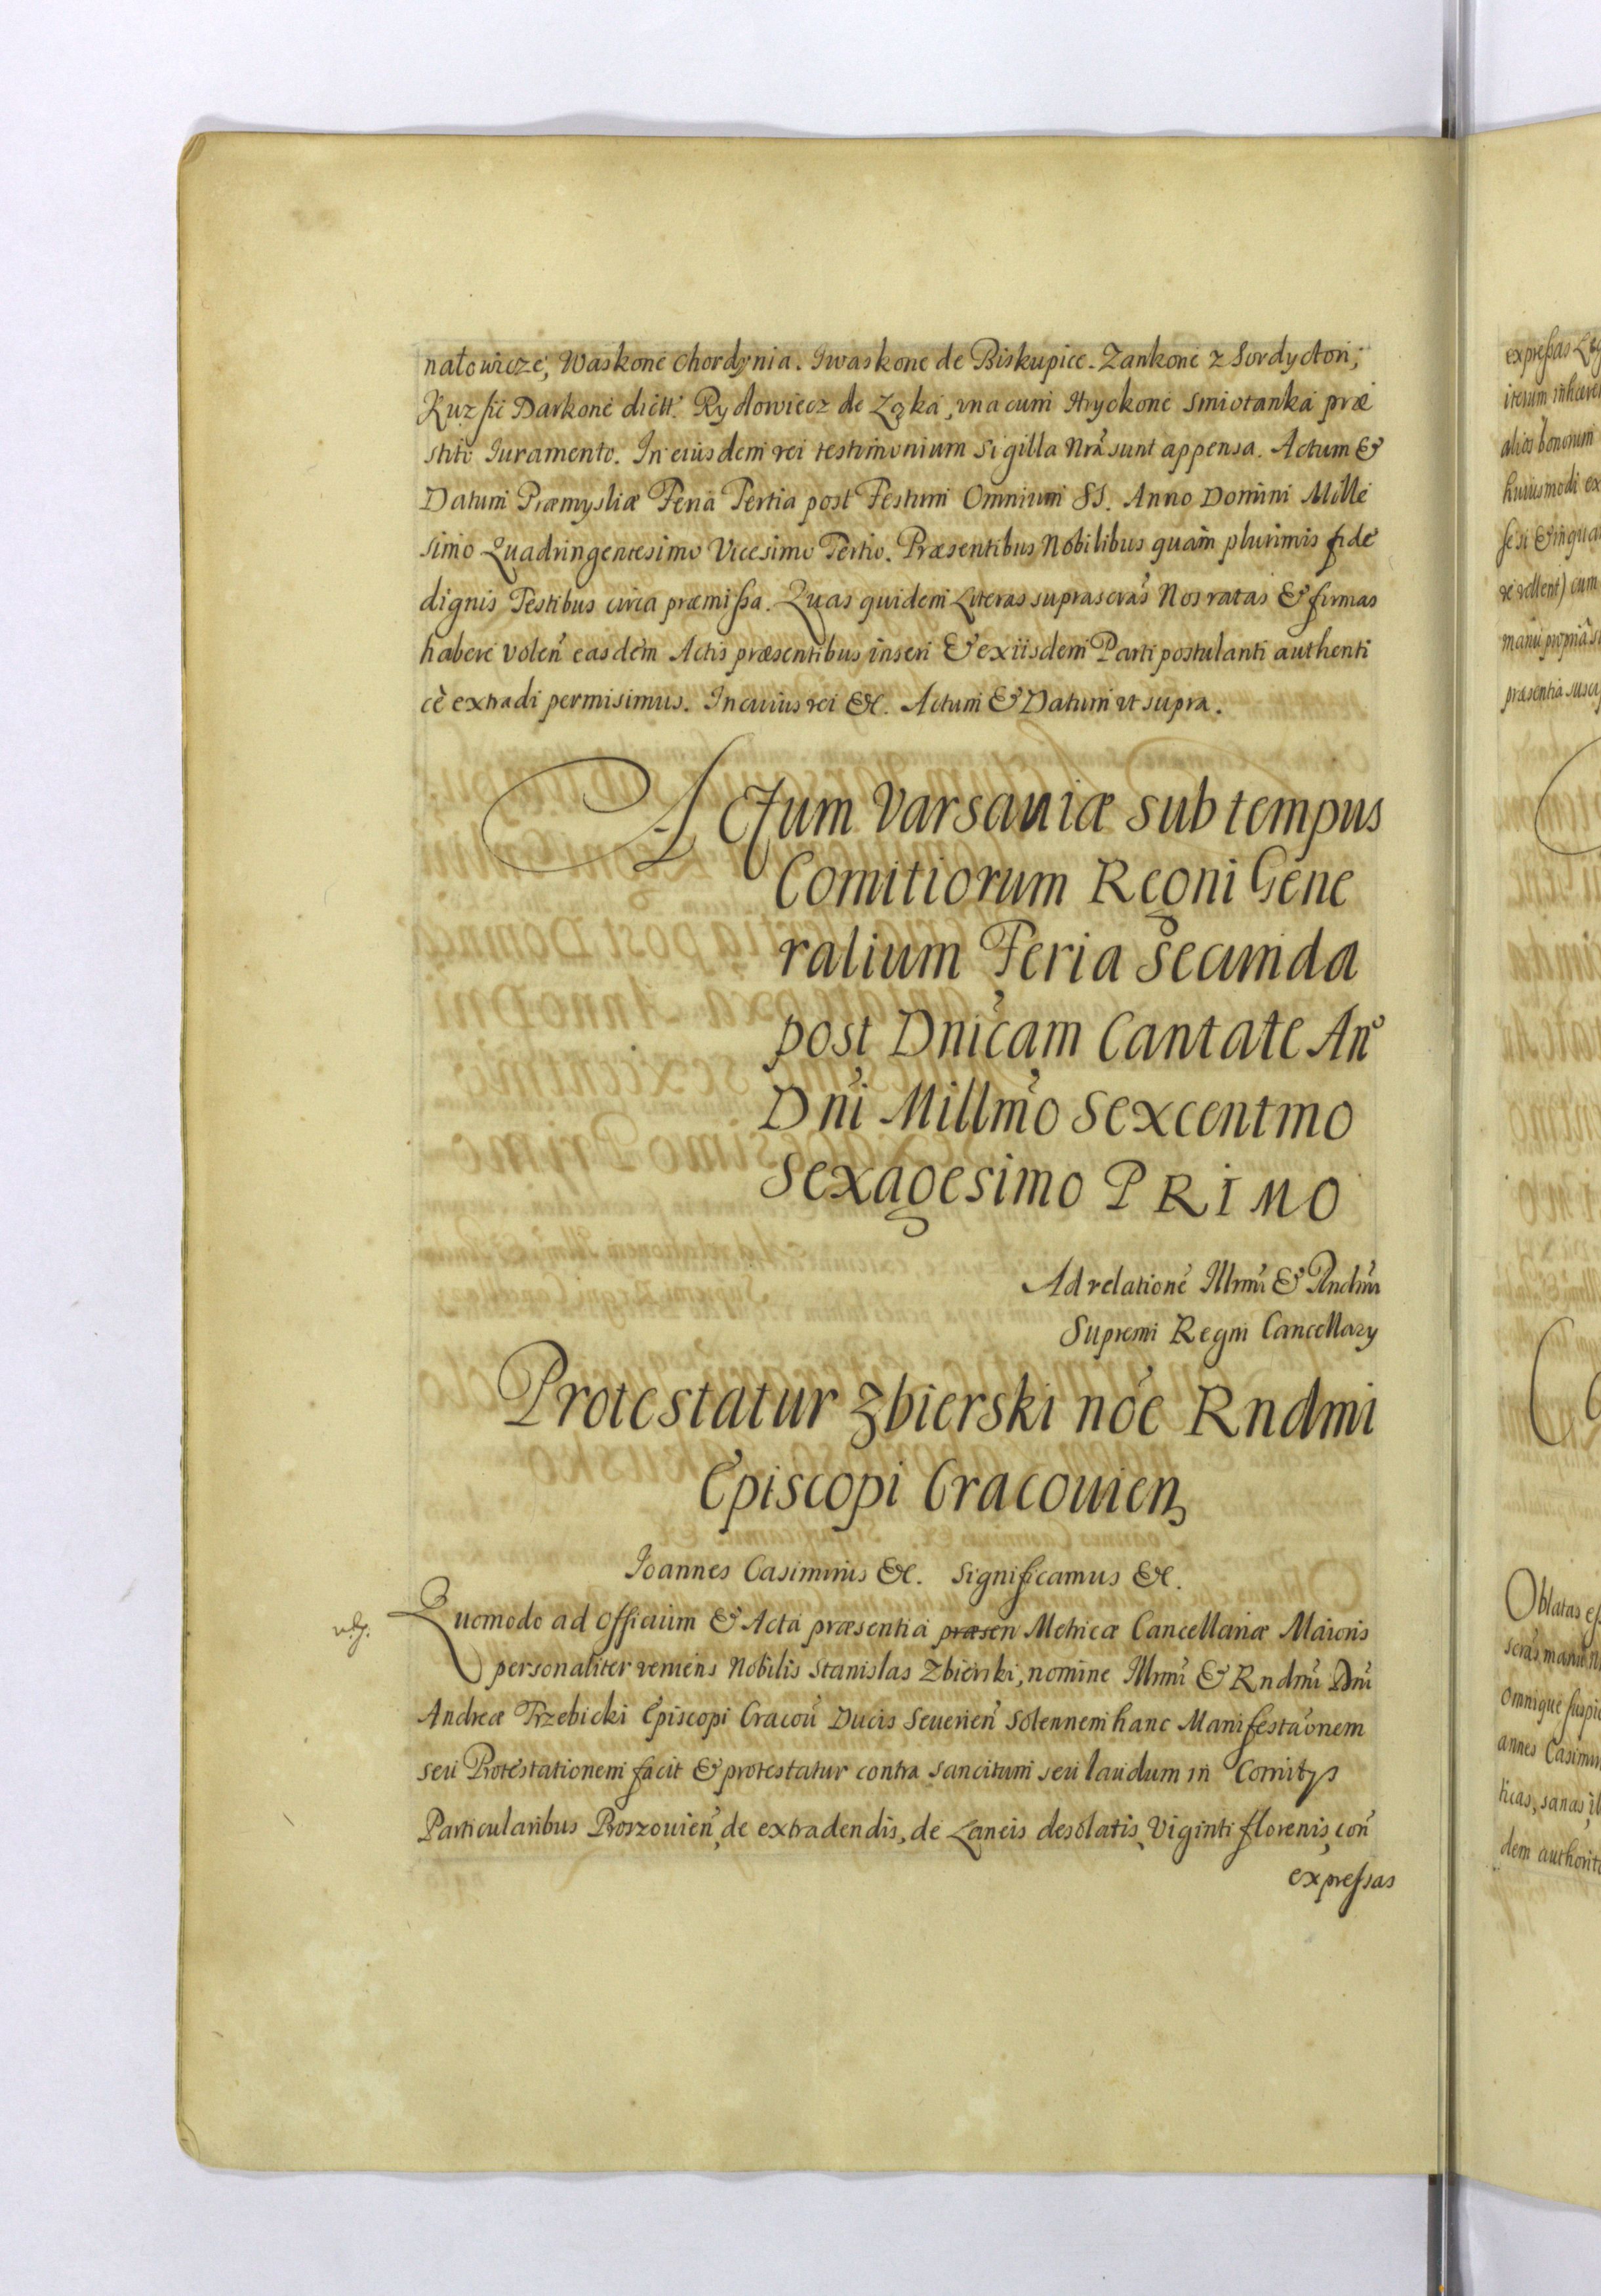 natowicze, Waskone Chordynia. Iwaskone de Biskupice. Zankone z Sordycton;
Kuzsic Darkone dictt. Rydlowiecz de Ląka, vna cum Hryckone Smiotanka præ
stito Iuramento. In eiusdem rei testimonium sigilla nrã sunt appensa. Actum &
Datum Præmysliæ Feria Tertia post Festum Omnium SS. Anno Domini Mille
simo Quadringentesimo Vicesimo Tertio. Præsentibus Nobilibus quam plurimis fide
dignis Testibus circa præmissa. Quas quidem Literas suprascras Nos ratas & firmas
habere volen easdem Actis præsentibus inseri & ex iisdem Parti postulanti authenti
cè extradi permisimus. In cuius rei &c. Actum & Datum vt supra.
Actum Varsauiæ sub tempus
Comitiorum Regni Gene
ralium Feria Secunda
post Dnicam Cantate Ano
Dni Millmo Sexcentmo
Sexagesimo PRIMO
Ad relatione Illrmi & Rndmi
Supremi Regni Cancellary
Protestatur Zbierski noe Rndmi
Episcopi Cracouien
Ioannes Casimirus &c. Significamus &c.
Quomodo ad Officium & Acta præsentia præsen Metricæ Cancellariæ Maioris
personaliter veniens Nobilis Stanislas Zbierski, nomine Illrmi & Rndmi Dni
Andreæ Trzebicki Episcopi Cracou Ducis Seuerien Solennem hanc Manifestaonem
seu Protestationem facit & protestatur contra sancitum seu laudum in Comitys
Particularibus Proszouien, de extradendis, de Laneis desolatis, Viginti florenis, con
expressas